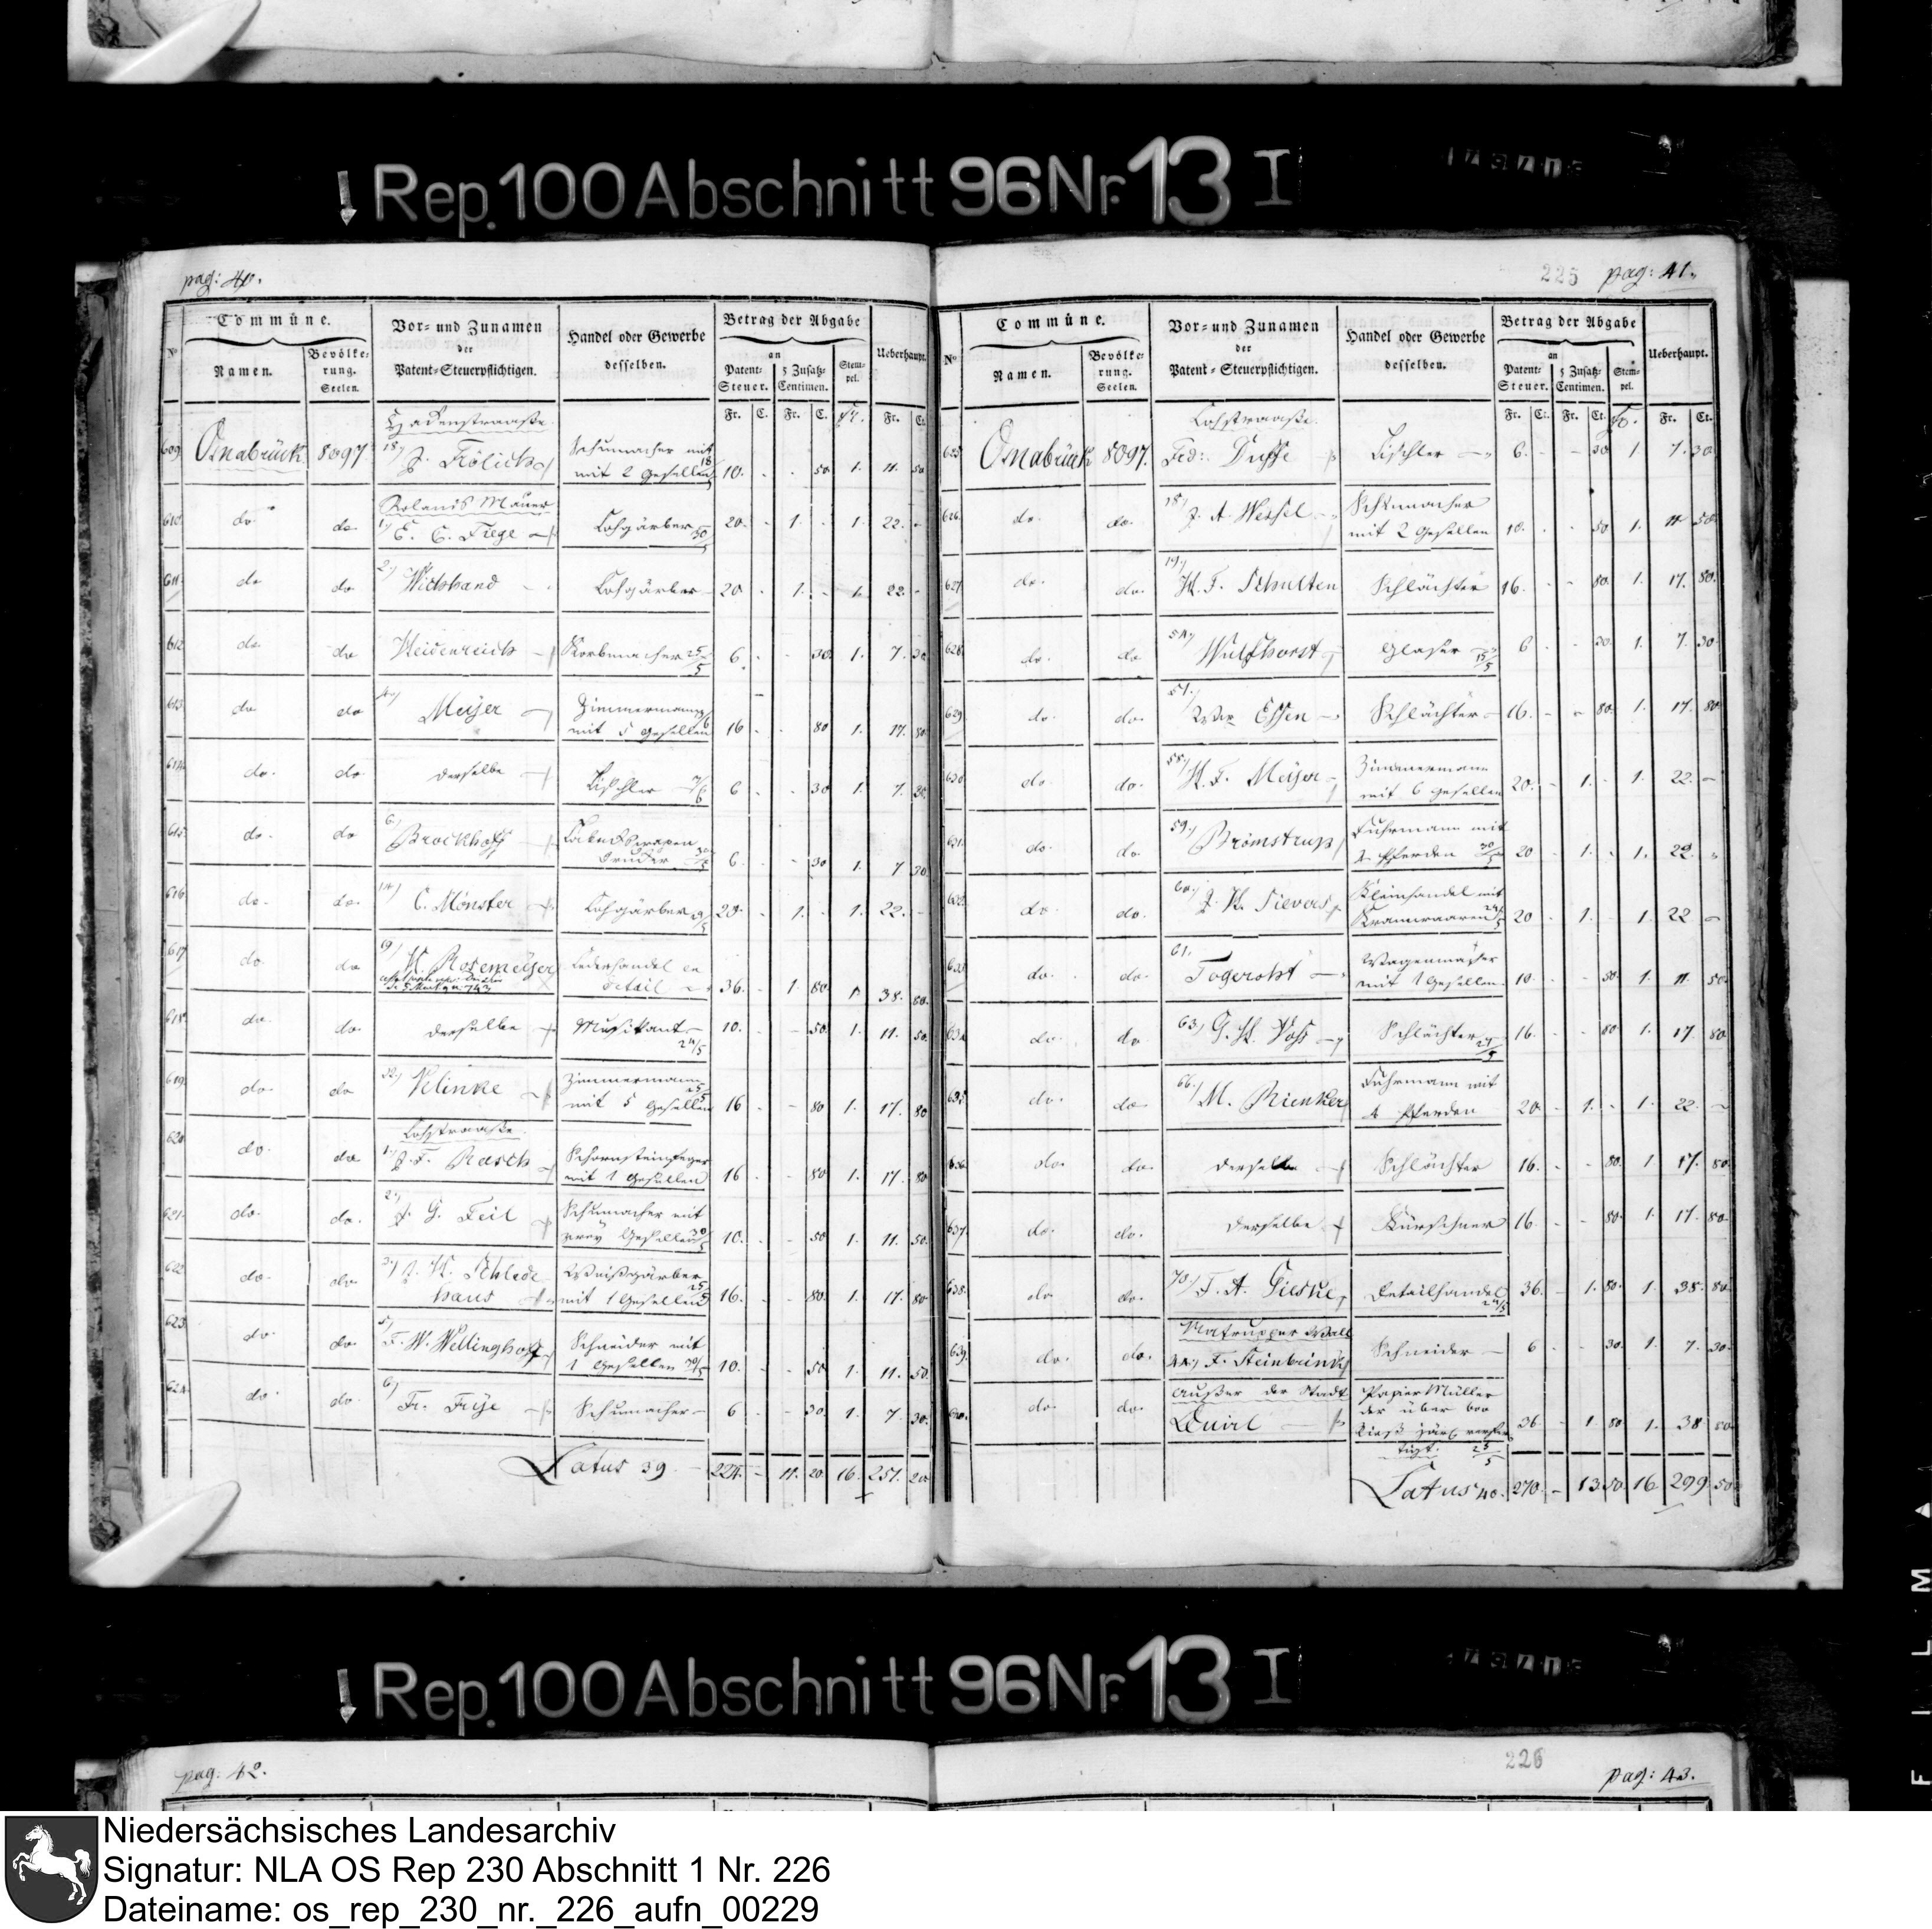 Rep. 100 Abschnitt 96 Nr. 13 I
pag: 40.
Commüne.
Vor- und Zunamen
der
Patent-Steuerpflichtigen.
Handel oder Gewerbe
desselben.
Betrag der Abgabe
Ueberhaupt.
No
Namen.
Bevölke-
rung.
Seelen.
an
Patent-
Steuer.
5 Zusatz-
Centimen.
Stem-
pel.
Fr. C. Fr. C. Fr. Fr. Ct.
Hakenstraaße.
609 Osnabrück 8097 18) J. Frölich Schumacher mit
mit 2 Gesellen 10. - - 50 1. 11. 50
Rolands Mauer
610 do do 1) E. C. Fiege Lohgärber 20. - 1. - 1. 22. -
611 do do 2) Lohgärber 20 - 1. - 1. 22. -
612 do do Heidenreich Korbmacher 25/5 6. - - 30 1. 7. 30
613 do do Meyer Zimmermann
mit 5 Gesellen 16 - - 80 1. 17. 80
614 do. do derselbe Tischler 6 - - 30 1. 7. 30.
615 do. do 6) Brockhoff 6. - - 30 1. 7 30
616 do. do. 14) C. Mönster Lohgärber 20. - 1. - 1. 22. -
617 do do 9) H. Rosemeyer Lederhandel en
detail 36. - 1 80 1. 38. 80.
618 do. do. derselbe Musikant 24/5 10. - - 50 1. 11. 50
619 do. do 32) Velinke Zimmermann
mit 5 Gesellen 16 - - 80 1. 17. 80
Lohstraaße.
620 do. do 1) J. F. Rasch Schornsteinfeger
mit 1 Gesellen 16 - - 80 1. 17. 80
621. do. do. 2) J. G. Feil Schumacher mit
zwey Gesellen 10. - - 50 1. 11. 50.
622 do. do 3) J. H. Schlede
haus Weißgärber
mit 1 Gesellen 16. - - 80. 1. 17. 80
623 do do 5) F. W. Wellinghoff Schneider mit
1 Gesellen 10. - - 50 1. 11. 50.
624 do do. 6) Fr. Frye Schumacher 6 - - 30. 1. 7. 30.
Latus 39. 224. - 11. 20 16. 251. 20
225 pag: 41.
Commüne.
Vor- und Zunamen
der
Patent-Steuerpflichtigen.
Handel oder Gewerbe
desselben.
Betrag der Abgabe
Ueberhaupt.
No
Namen.
Bevölke-
rung.
Seelen.
an
Patent-
Steuer.
5 Zusatz-
Centimen.
Stem-
pel.
Fr. Ct. Fr. Ct. Fr. Fr. Ct.
Lohstraaße.
625 Osnabrück 8097. Frd: Duffe Tischler 6. - - 30 1. 7. 30
626. do. do. 18) J. A. Wessel Schumacher
mit 2 Gesellen 10. - - 50 1. 11 50
627. do. do. 19) H. F. Schulten Schlächter 16. - - 80. 1. 17. 80.
628 do. do 54) Wulfhorst Glaser 15/5 6 - - 30. 1. 7. 30
629 do. do. 57) Wwe Essen Schlächter 16. - - 80. 1. 17. 80
630 do. do. 58) H. F. Meyer Zimmermann
mit 6 Gesellen 20. - 1. - 1. 22. -
631 do. do. 59) Brömstrup Fuhrmann mit
4 Pferden 20 - 1. - 1. 22. -
632 do. do. 60) J. H. Sievers Kleinhandel mit
Kramwaaren 20 - 1. - 1. 22 -
633 do. do. 61. Togeroht
mit 1 Gesellen 10. - - 50. 1. 11. 50.
634 do. do. 63) G. H. Voß Schlächter 16. - - 80 1. 17 80
635 do. do. 66) M. Rienker Fuhrmann mit
4 Pferden 20. - 1. - 1. 22. -
636 do. do. derselbe Schlächter 16. - - 80. 1. 17. 80.
637. do. do. derselbe Kürschner 16. - - 80. 1. 17. 80.
638. do. do. 73) F. A. Gieske Detailhandel 36. - 1. 80. 1. 38. 80.
Natrupper Wall
639 do. do. 44) F. Steinbrink Schneider 6 - - 30. 1. 7. 30.
Außer der Stadt
640. do. do. Quirl Papier Müller
der über 600
Rieß jährl. verfer-
tigt. 25/5 36 - 1 80 1. 38 80
Latus 40. 270. - 13 50. 16 299. 50
Rep. 100 Abschnitt 96 Nr. 13 I
pag. 42.
226 pag: 43.
FILM
Niedersächsisches Landesarchiv
Signatur: NLA OS Rep 230 Abschnitt 1 Nr. 226
Dateiname: os_rep_230_nr._226_aufn_00229